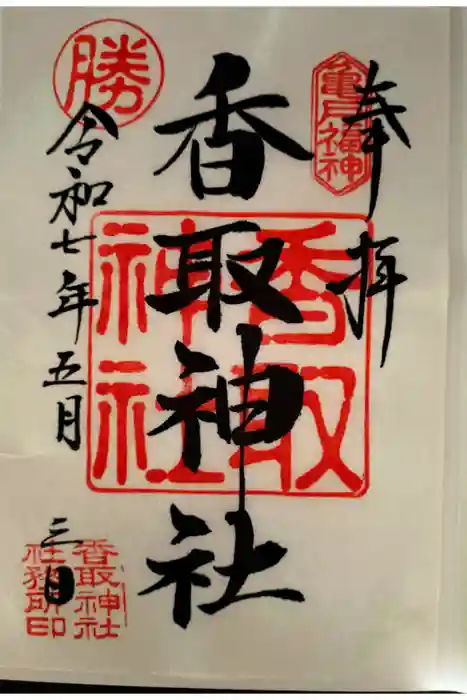 奉拝
亀戸福神
香取神社
香取
神社
勝
令和七年五月
三日
香取神社
社務所印